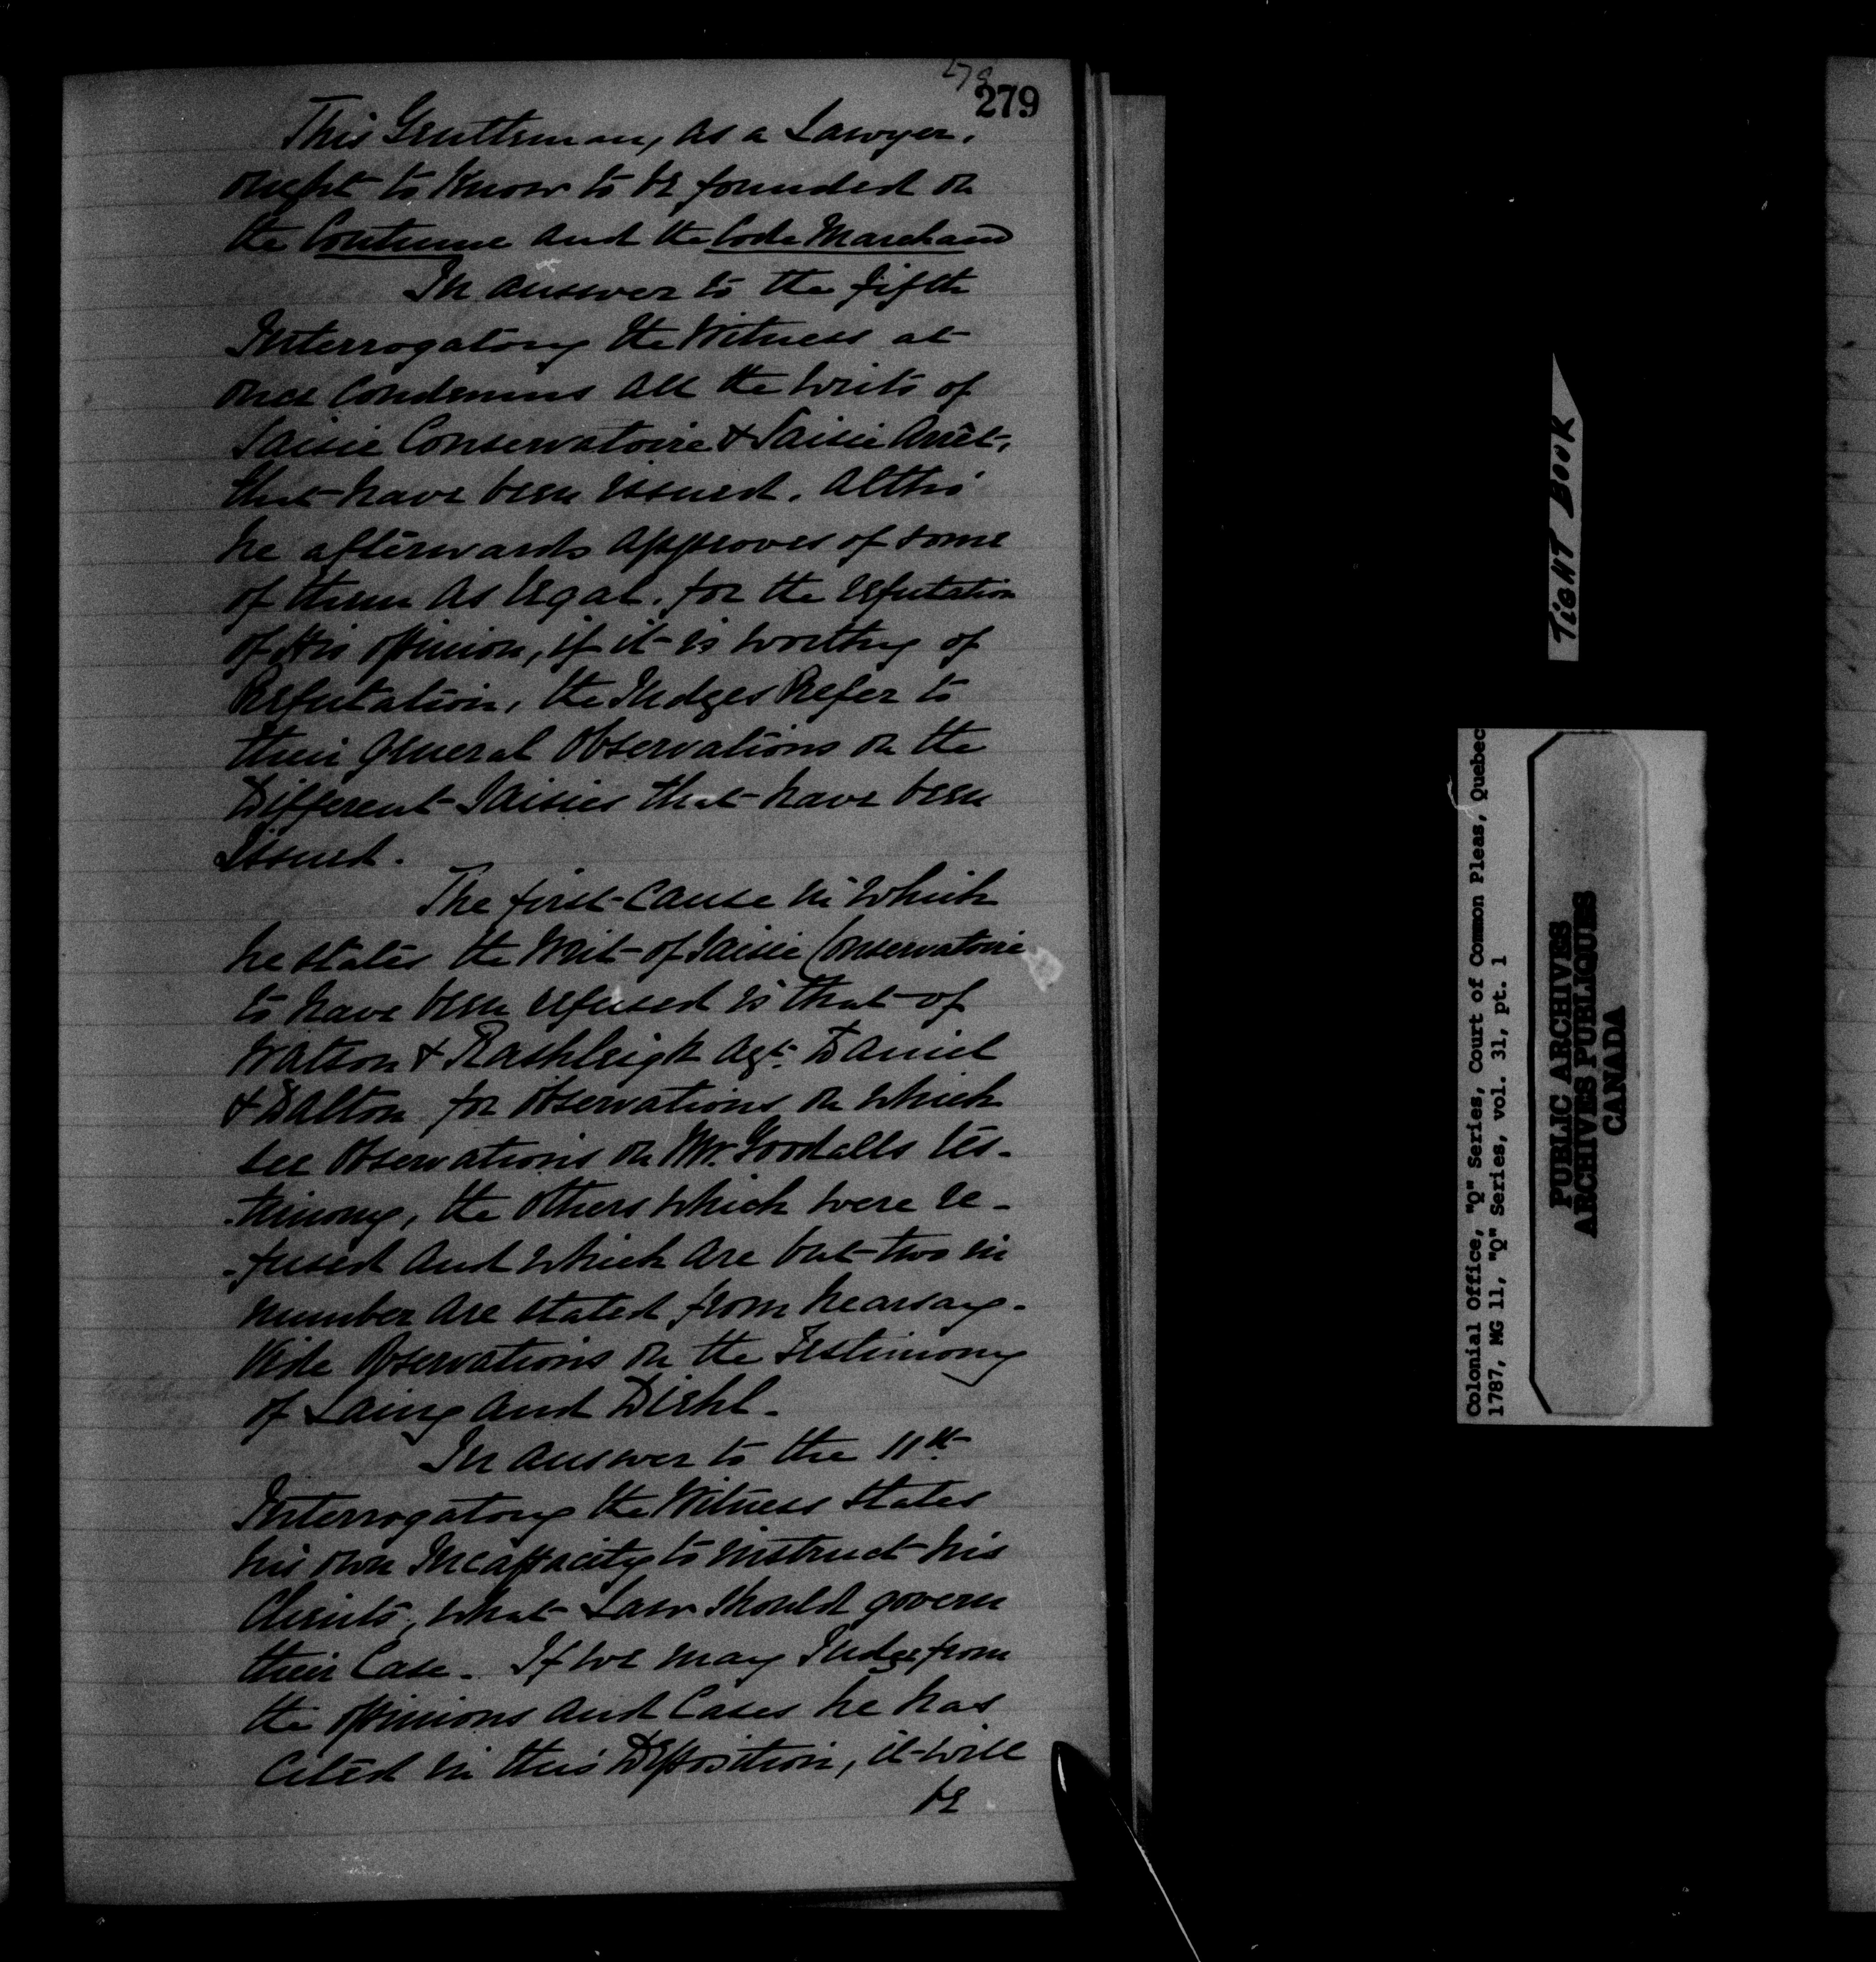 279
279
This Gentleman, as a Lawyer,
ought to know to be founded on
the Coutume and the Code Marchand
In answer to the fifth
Interrogatory the Witness at
once Condemns all the Writs of
Saisie Conservatoire & Saisie Arrêt,
that have been issued. Altho'
he afterwards approves of some
of them as legal. for the refutation
of his opinion, if it is worthy of
Refutation, the Judges Refer to
their General Observations on the
Different Saisies that have been
Issued.
The first Cause in which
he states the Writ of Saisie Conservatoire
to have been refused is that of
Watson & Rashleigh agt. Daniel
& Dalton for observations on which
see observations on Mr. Goodalls tes-
-timony, the others which were re-
-fused and which are but two in
number are stated from hearsay.
Vide Observations on the Testimony
of Laing and Diehl.
In answer to the 11th
Interrogatory the Witness states
his own Incapacity to instruct his
Clients, what Law should govern
their Case. If we may Judge from
the opinions and Cases he has
Cited in this Deposition, it will
be
TIGHT BOOK
Colonial Office, "Q" Series, Court of Common Pleas, Quebec
1787, MG 11, "Q" Series, vol. 31, pt. 1
PUBLIC ARCHIVES
ARCHIVES PUBLIQUES
CANADA